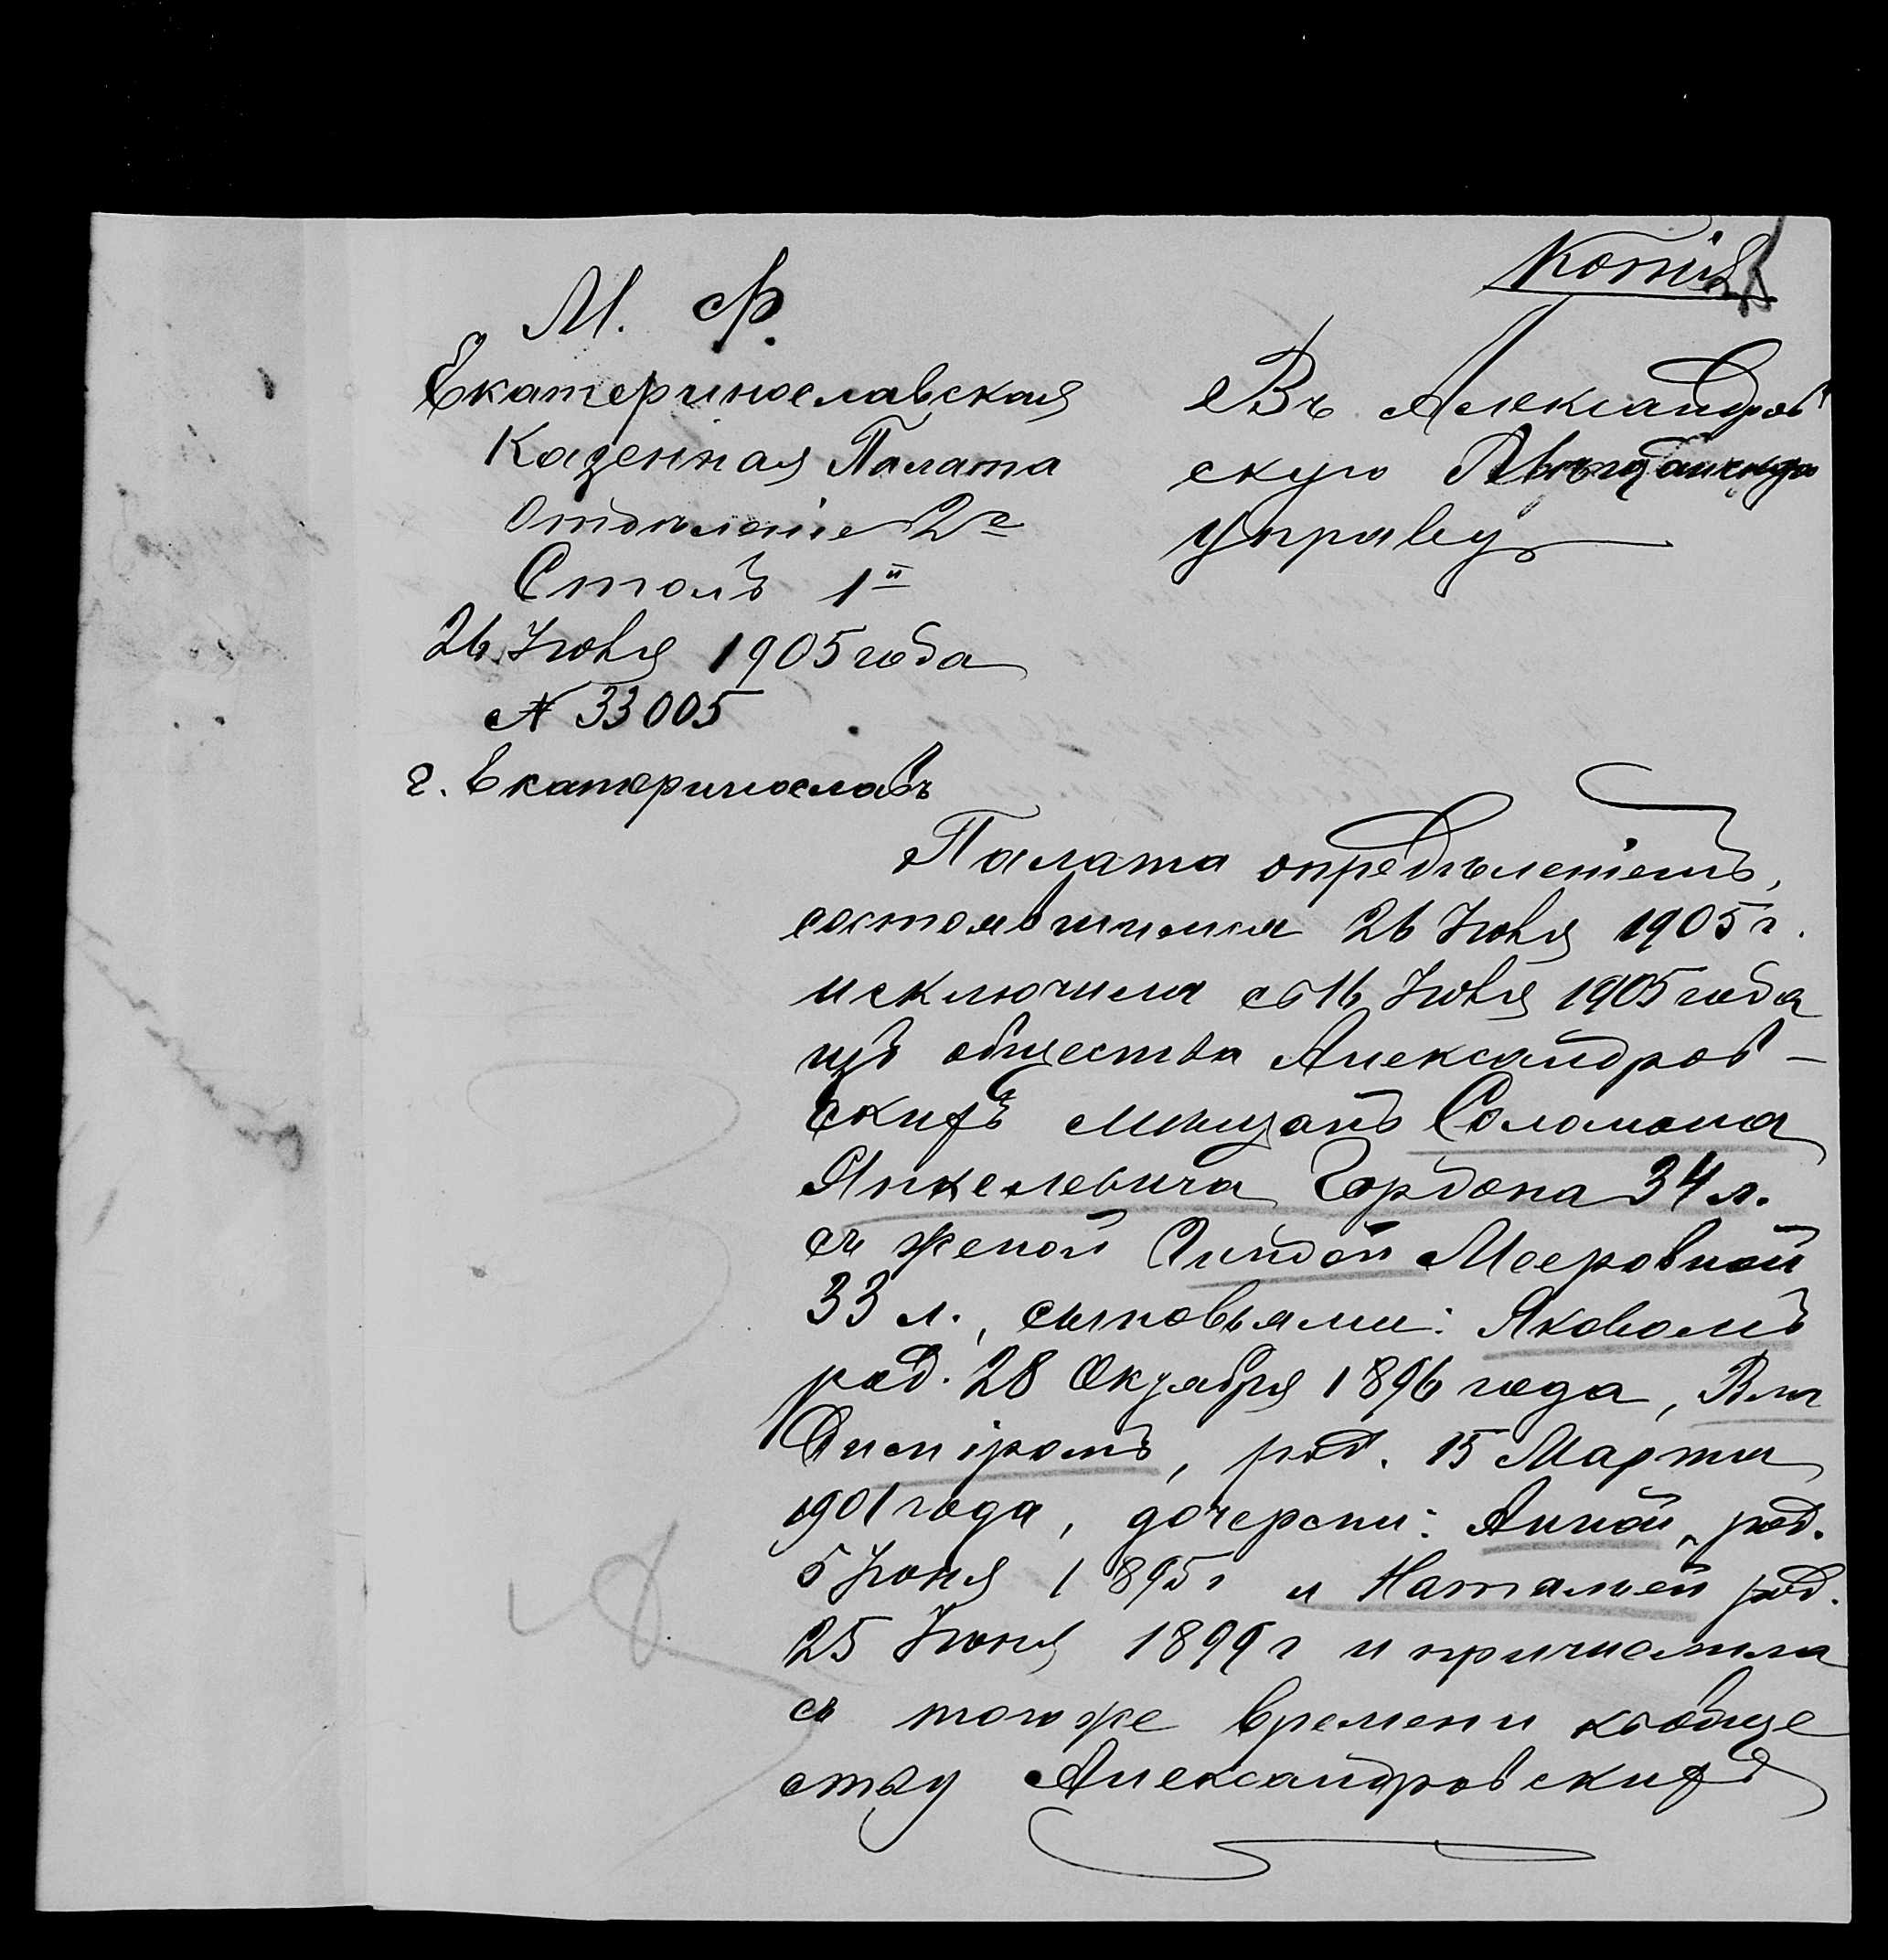 Копія
М. Ф.
Екатеринославская
Казенная Палата
Отдѣленіе 2е
Столъ 1й
26 Іюля 1905 года
№ 33005
г. Екатеринославъ
Въ Александров
скую Мѣщанскую
Управу
Палата опредѣленіемъ,
состоявшимся 26 Іюля 1905 г.
исключила съ 16 Іюля 1905 года
изъ общества Александров-
скихъ мѣщанъ Соломона
Янкелевича Гордона 34 л.
съ женой Линдой Мееровной
33 л., сыновьями: Яковомъ
род. 28 Октября 1896 года, Вла
димiромъ, род. 15 Марта
1901 года, дочерьми: Анной, род.
5 Іюня 1895 г и Натальей род.
25 Іюня 1899 г и причислила
съ того же времени къ обще
ству Александровскихъ